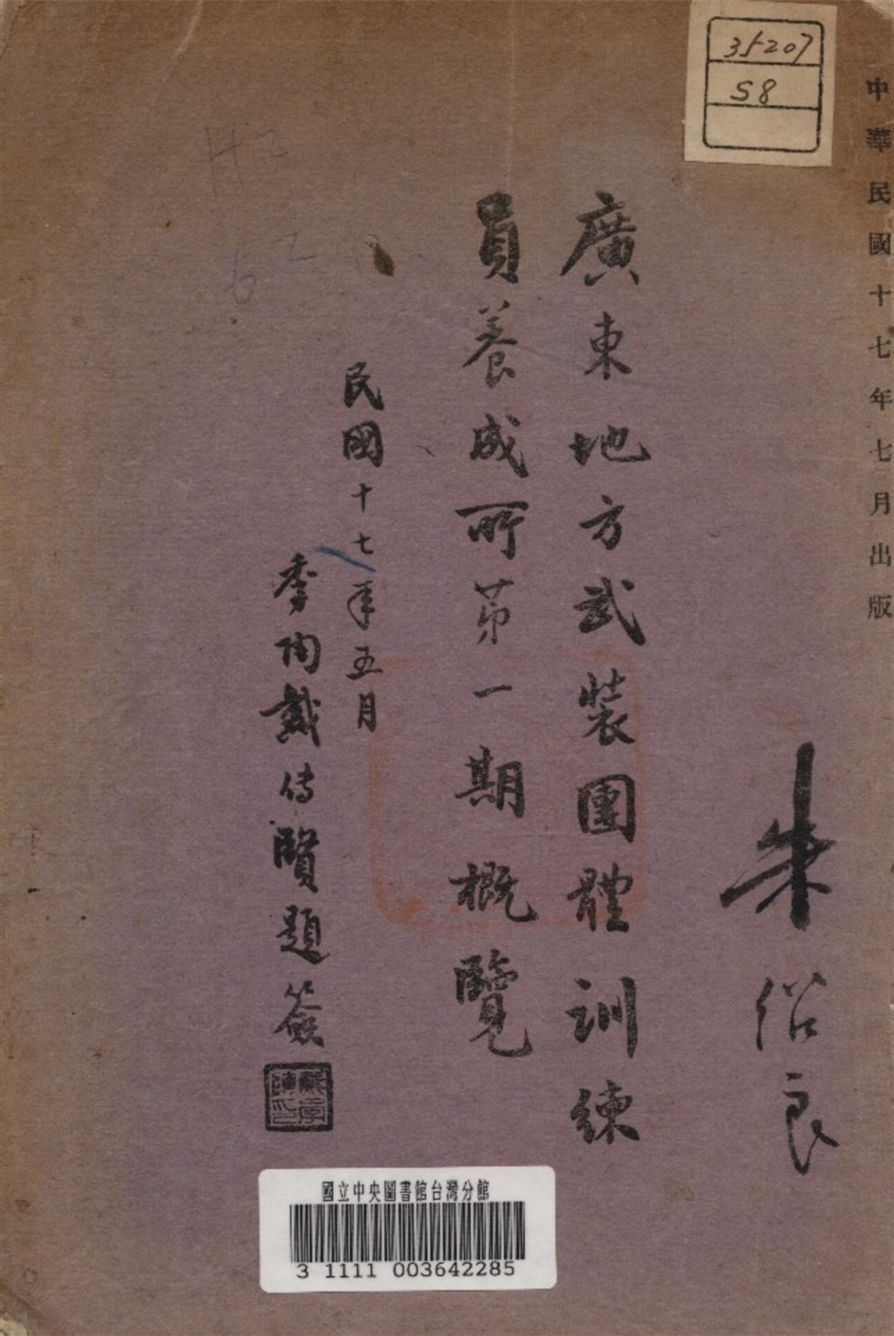 中華民國十七年七月出版
35207
58
朱紹良
廣東地方武裝團體訓練
員養成所第一期概覽
民國十七年五月
季陶戴傳賢題簽
H2
62
國立中央圖書館台灣分館
3 1111 003642285